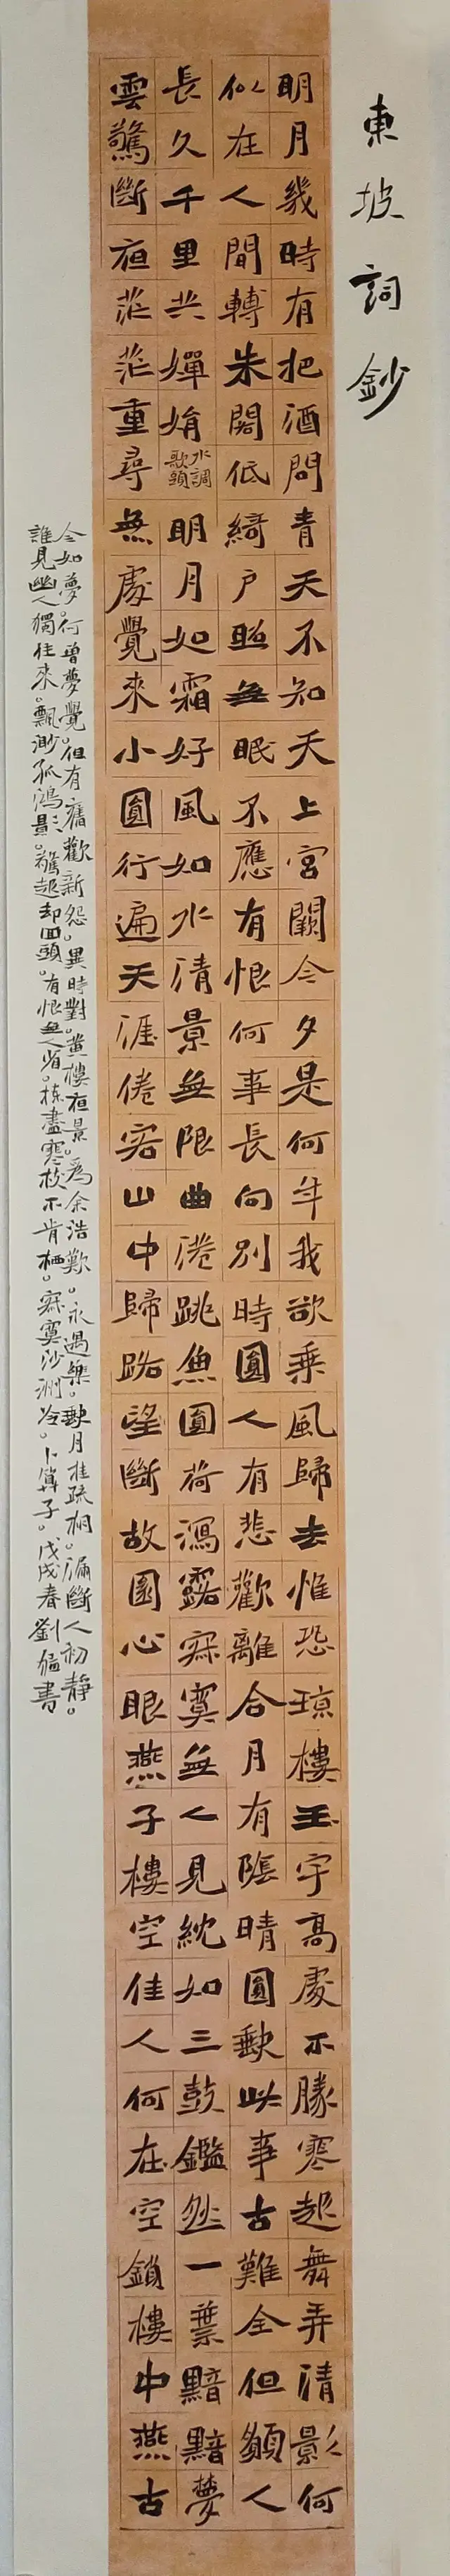 東坡詞鈔
明月幾時有把酒問青天不知天上宮闕今夕是何年我欲乘風歸去惟恐瓊樓玉宇高處不勝寒起舞弄清影何
似在人間轉朱閣低綺户照無眠不應有恨何事長向別時圓人有悲歡離合月有陰晴圓缺此事古難全但願人
長久千里共嬋娟水調歌頭明月如霜好風如水清景無限曲港跳魚圓荷瀉露寂寞無人見紞如三鼓鑑然一葉黯黯夢
雲驚斷夜茫茫重尋無處覺來小圓行遍天涯倦客山中歸路望斷故園心眼燕子樓空佳人何在空鎖樓中燕古
今如夢。何曾夢覺。但有舊歡新怨。異時對。黃樓夜景。爲余浩歎。永遇樂。缺月挂疏桐。漏斷人初靜。
誰見幽人獨往來。飄渺孤鴻影。驚起却回頭。有恨無人省。揀盡寒枝不肯栖。寂寞沙洲冷。卜算子。戊戌春劉書